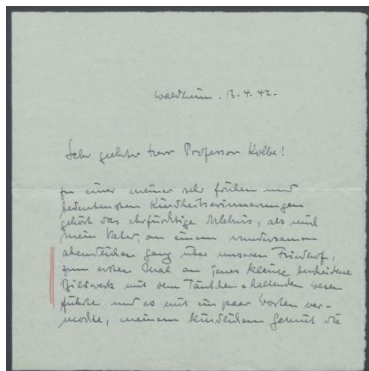 Waldheim. 13.4.42.
Sehr geehrter Herr Professor Kolbe!
Zu einer meiner sehr frühen und
bedeutendsten Kindheitserinnerungen
gehört das ehrfürchtige Erlebnis, als mich
mein Vater, an einem wundersamen
abendlichen Gang über unseren Friedhof,
zum ersten Mal an jenes kleine
Bildwerk mit dem Täubchen haltenden
führte und es mit ein paar Worten ver-
mochte, meinem kindlichen Gemüt die